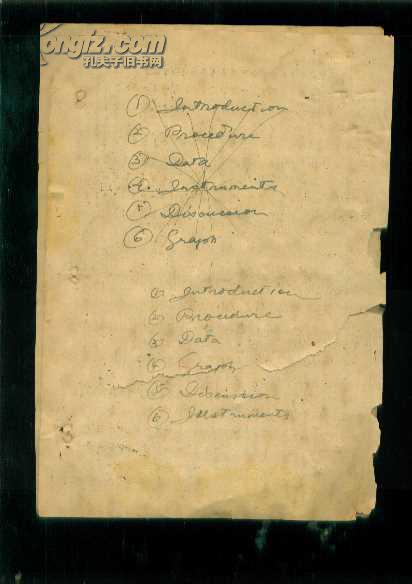 ongfz.com
孔夫子旧书网
① Introduction
② Procedure
③ Data
④ Instruments
⑤ Discussion
⑥ Graph
① Introduction
② Procedure
③ Data
④ Graph
⑤ Discussion
⑥ Instruments